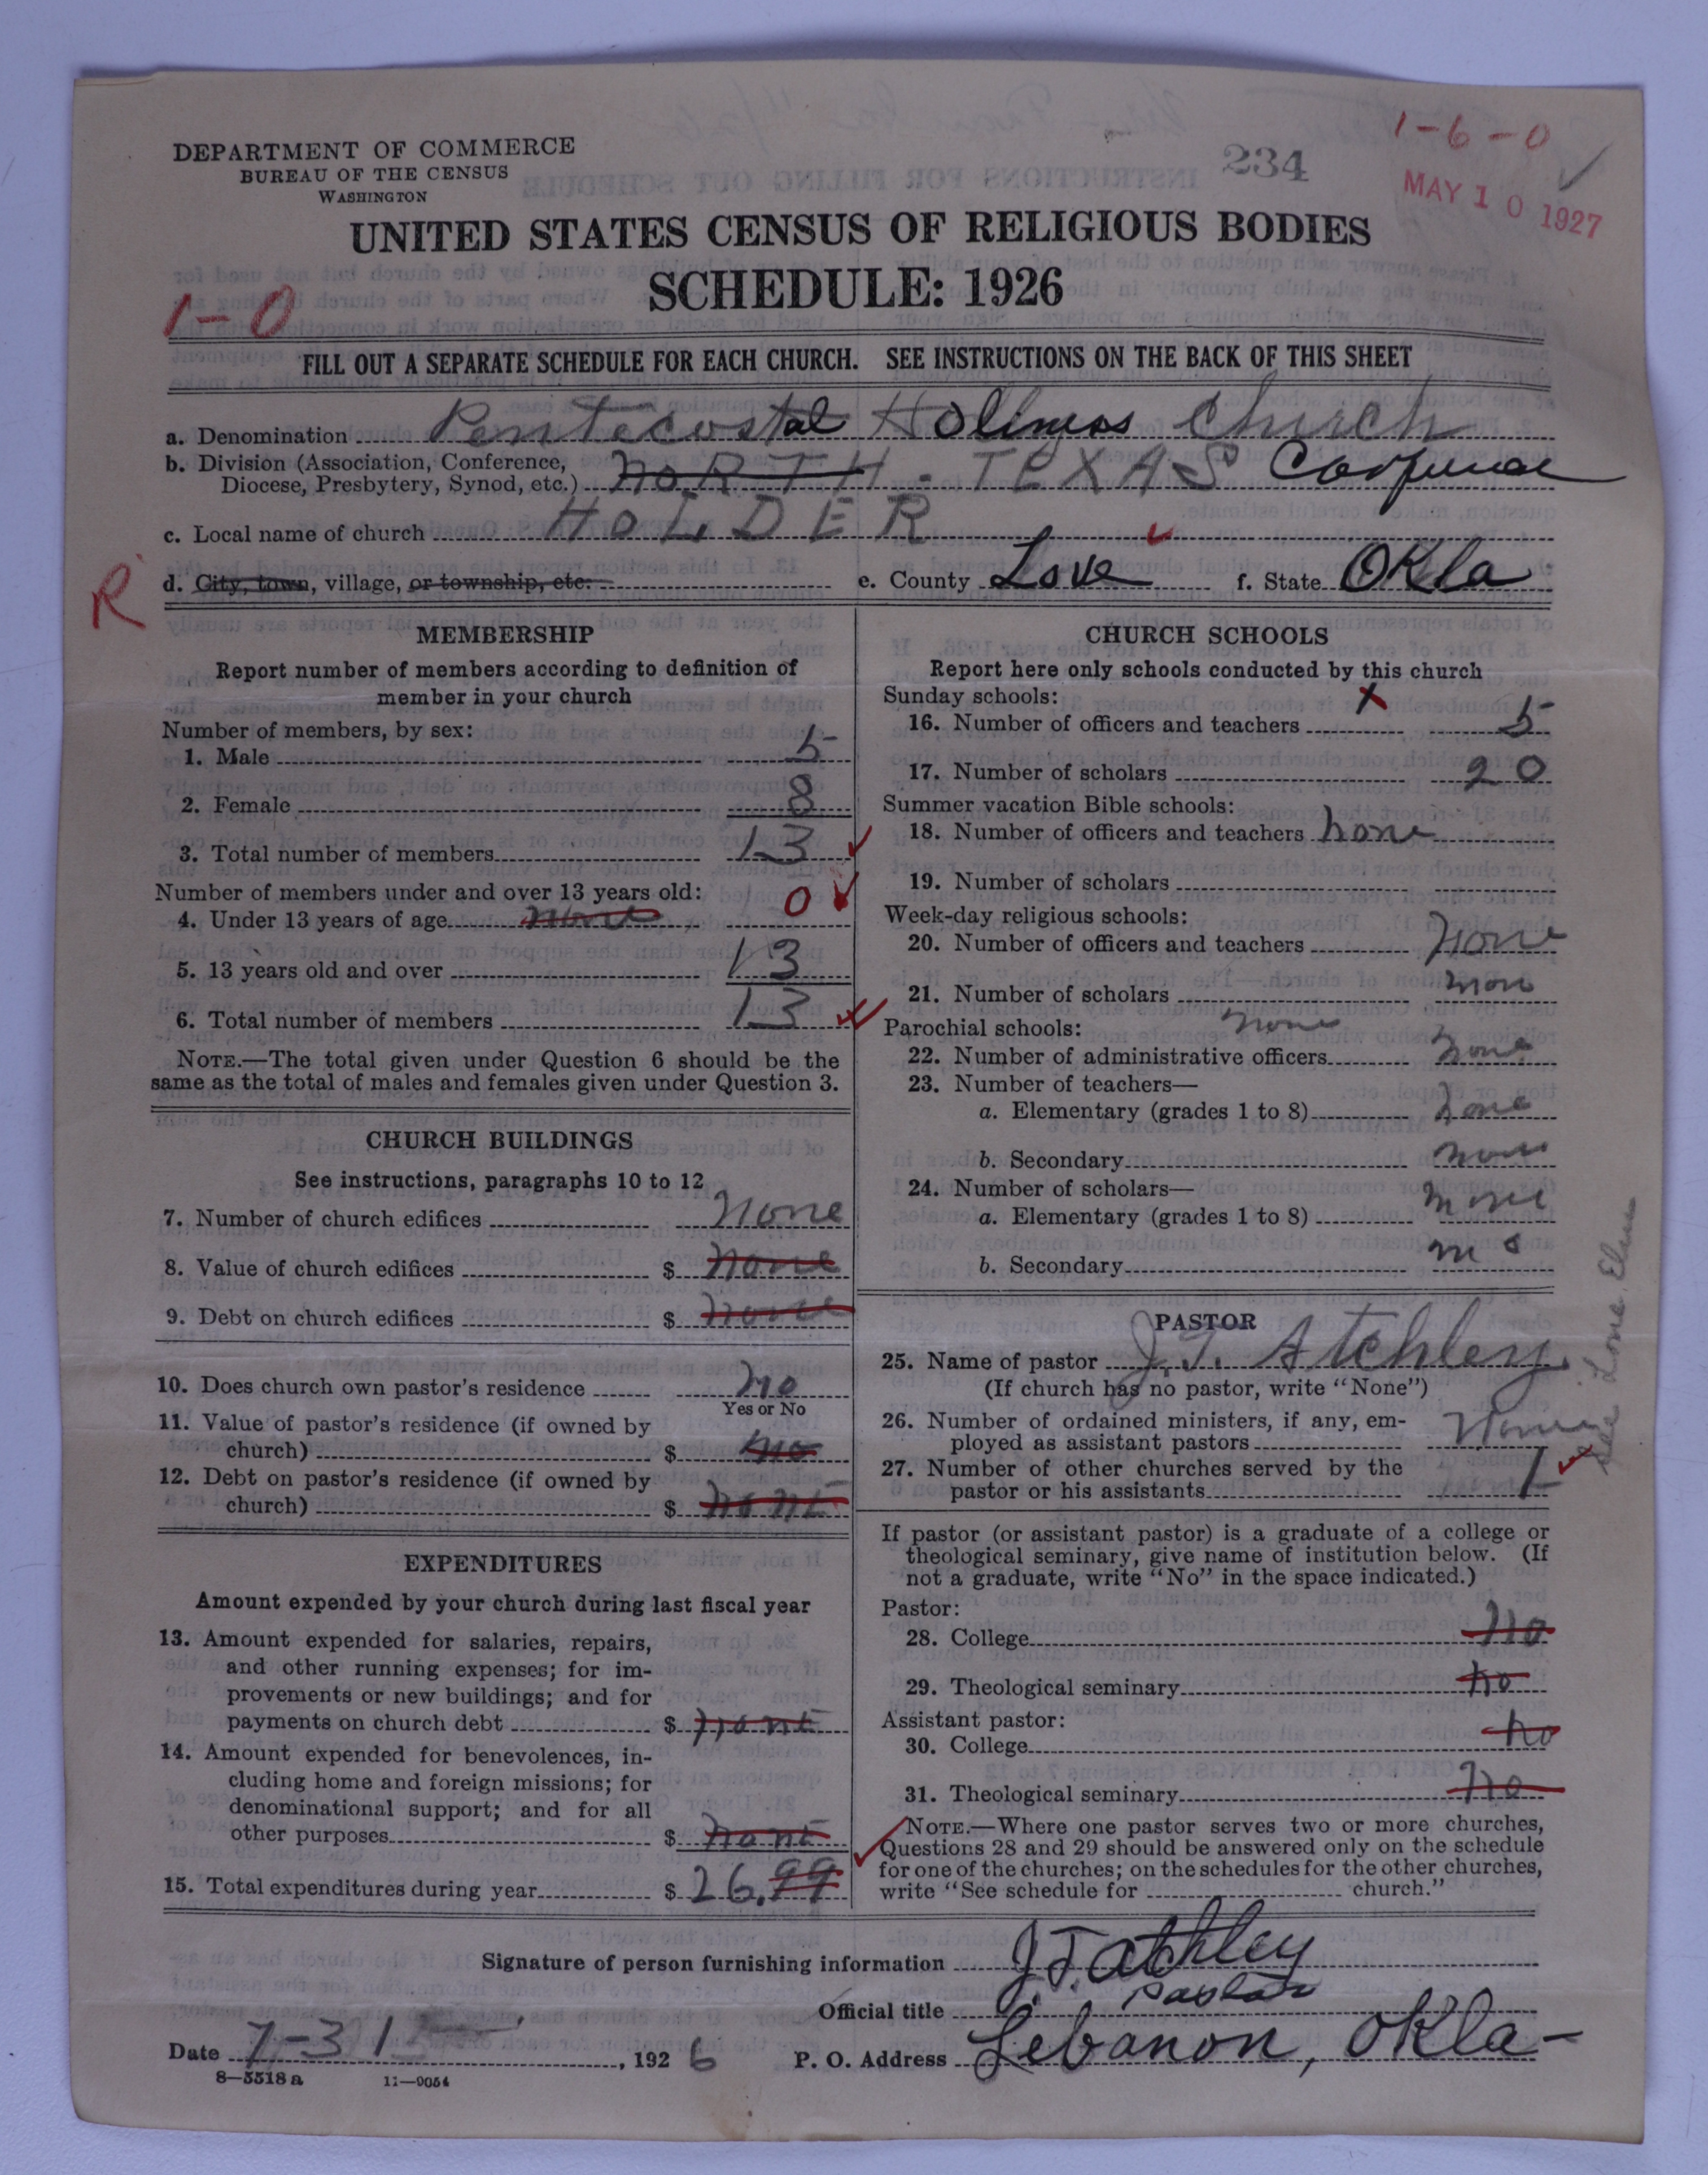 1-6-0
234
MAY 10 1927
DEPARTMENT OF COMMERCE
BUREAU OF THE CENSUS
WASHINGTON
UNITED STATES CENSUS OF RELIGIOUS BODIES
SCHEDULE: 1926
1-0
FILL OUT A SEPARATE SCHEDULE FOR EACH CHURCH. SEE INSTRUCTIONS ON THE BACK OF THIS SHEET
a. Denomination Pentecostal Holiness Church
b. Division (Association, Conference,
Diocese, Presbytery, Synod, etc.) NORTH - TEXAS
c. Local name of church HOLDER
R
d. City, town, village, or township, etc. e. County Love f. State Okla
MEMBERSHIP
Report number of members according to definition of
member in your church
Number of members, by sex:
1. Male 5
2. Female 8
3. Total number of members 13
Number of members under and over 13 years old:
4. Under 13 years of age none 0
5. 13 years old and over 13
6. Total number of members 13
NOTE.—The total given under Question 6 should be the
same as the total of males and females given under Question 3.
CHURCH BUILDINGS
See instructions, paragraphs 10 to 12
7. Number of church edifices none
8. Value of church edifices $ none
9. Debt on church edifices $ none
10. Does church own pastor's residence no
Yes or No
11. Value of pastor's residence (if owned by
church) $ no
12. Debt on pastor's residence (if owned by
church) $ none
EXPENDITURES
Amount expended by your church during last fiscal year
13. Amount expended for salaries, repairs,
and other running expenses; for im-
provements or new buildings; and for
payments on church debt $ none
14. Amount expended for benevolences, in-
cluding home and foreign missions; for
denominational support; and for all
other purposes $ none
15. Total expenditures during year $ 26.99
CHURCH SCHOOLS
Report here only schools conducted by this church
Sunday schools: x
16. Number of officers and teachers 5
17. Number of scholars 20
Summer vacation Bible schools:
18. Number of officers and teachers none
19. Number of scholars
Week-day religious schools:
20. Number of officers and teachers none
21. Number of scholars none
Parochial schools: none
22. Number of administrative officers none
23. Number of teachers—
a. Elementary (grades 1 to 8) none
b. Secondary none
24. Number of scholars—
a. Elementary (grades 1 to 8) none
b. Secondary
PASTOR
25. Name of pastor J. T. Atchley
(If church has no pastor, write "None")
26. Number of ordained ministers, if any, em-
ployed as assistant pastors None
27. Number of other churches served by the
pastor or his assistants 1
See Lone Elm
If pastor (or assistant pastor) is a graduate of a college or
theological seminary, give name of institution below. (If
not a graduate, write "No" in the space indicated.)
Pastor:
28. College no
29. Theological seminary no
Assistant pastor:
30. College no
31. Theological seminary no
NOTE.—Where one pastor serves two or more churches,
Questions 28 and 29 should be answered only on the schedule
for one of the churches; on the schedules for the other churches,
write "See schedule for church."
Signature of person furnishing information J. T. Atchley
Official title Pastor
Date 7-31, 1926 P. O. Address Lebanon, Okla-
8—5518 a 11—9054